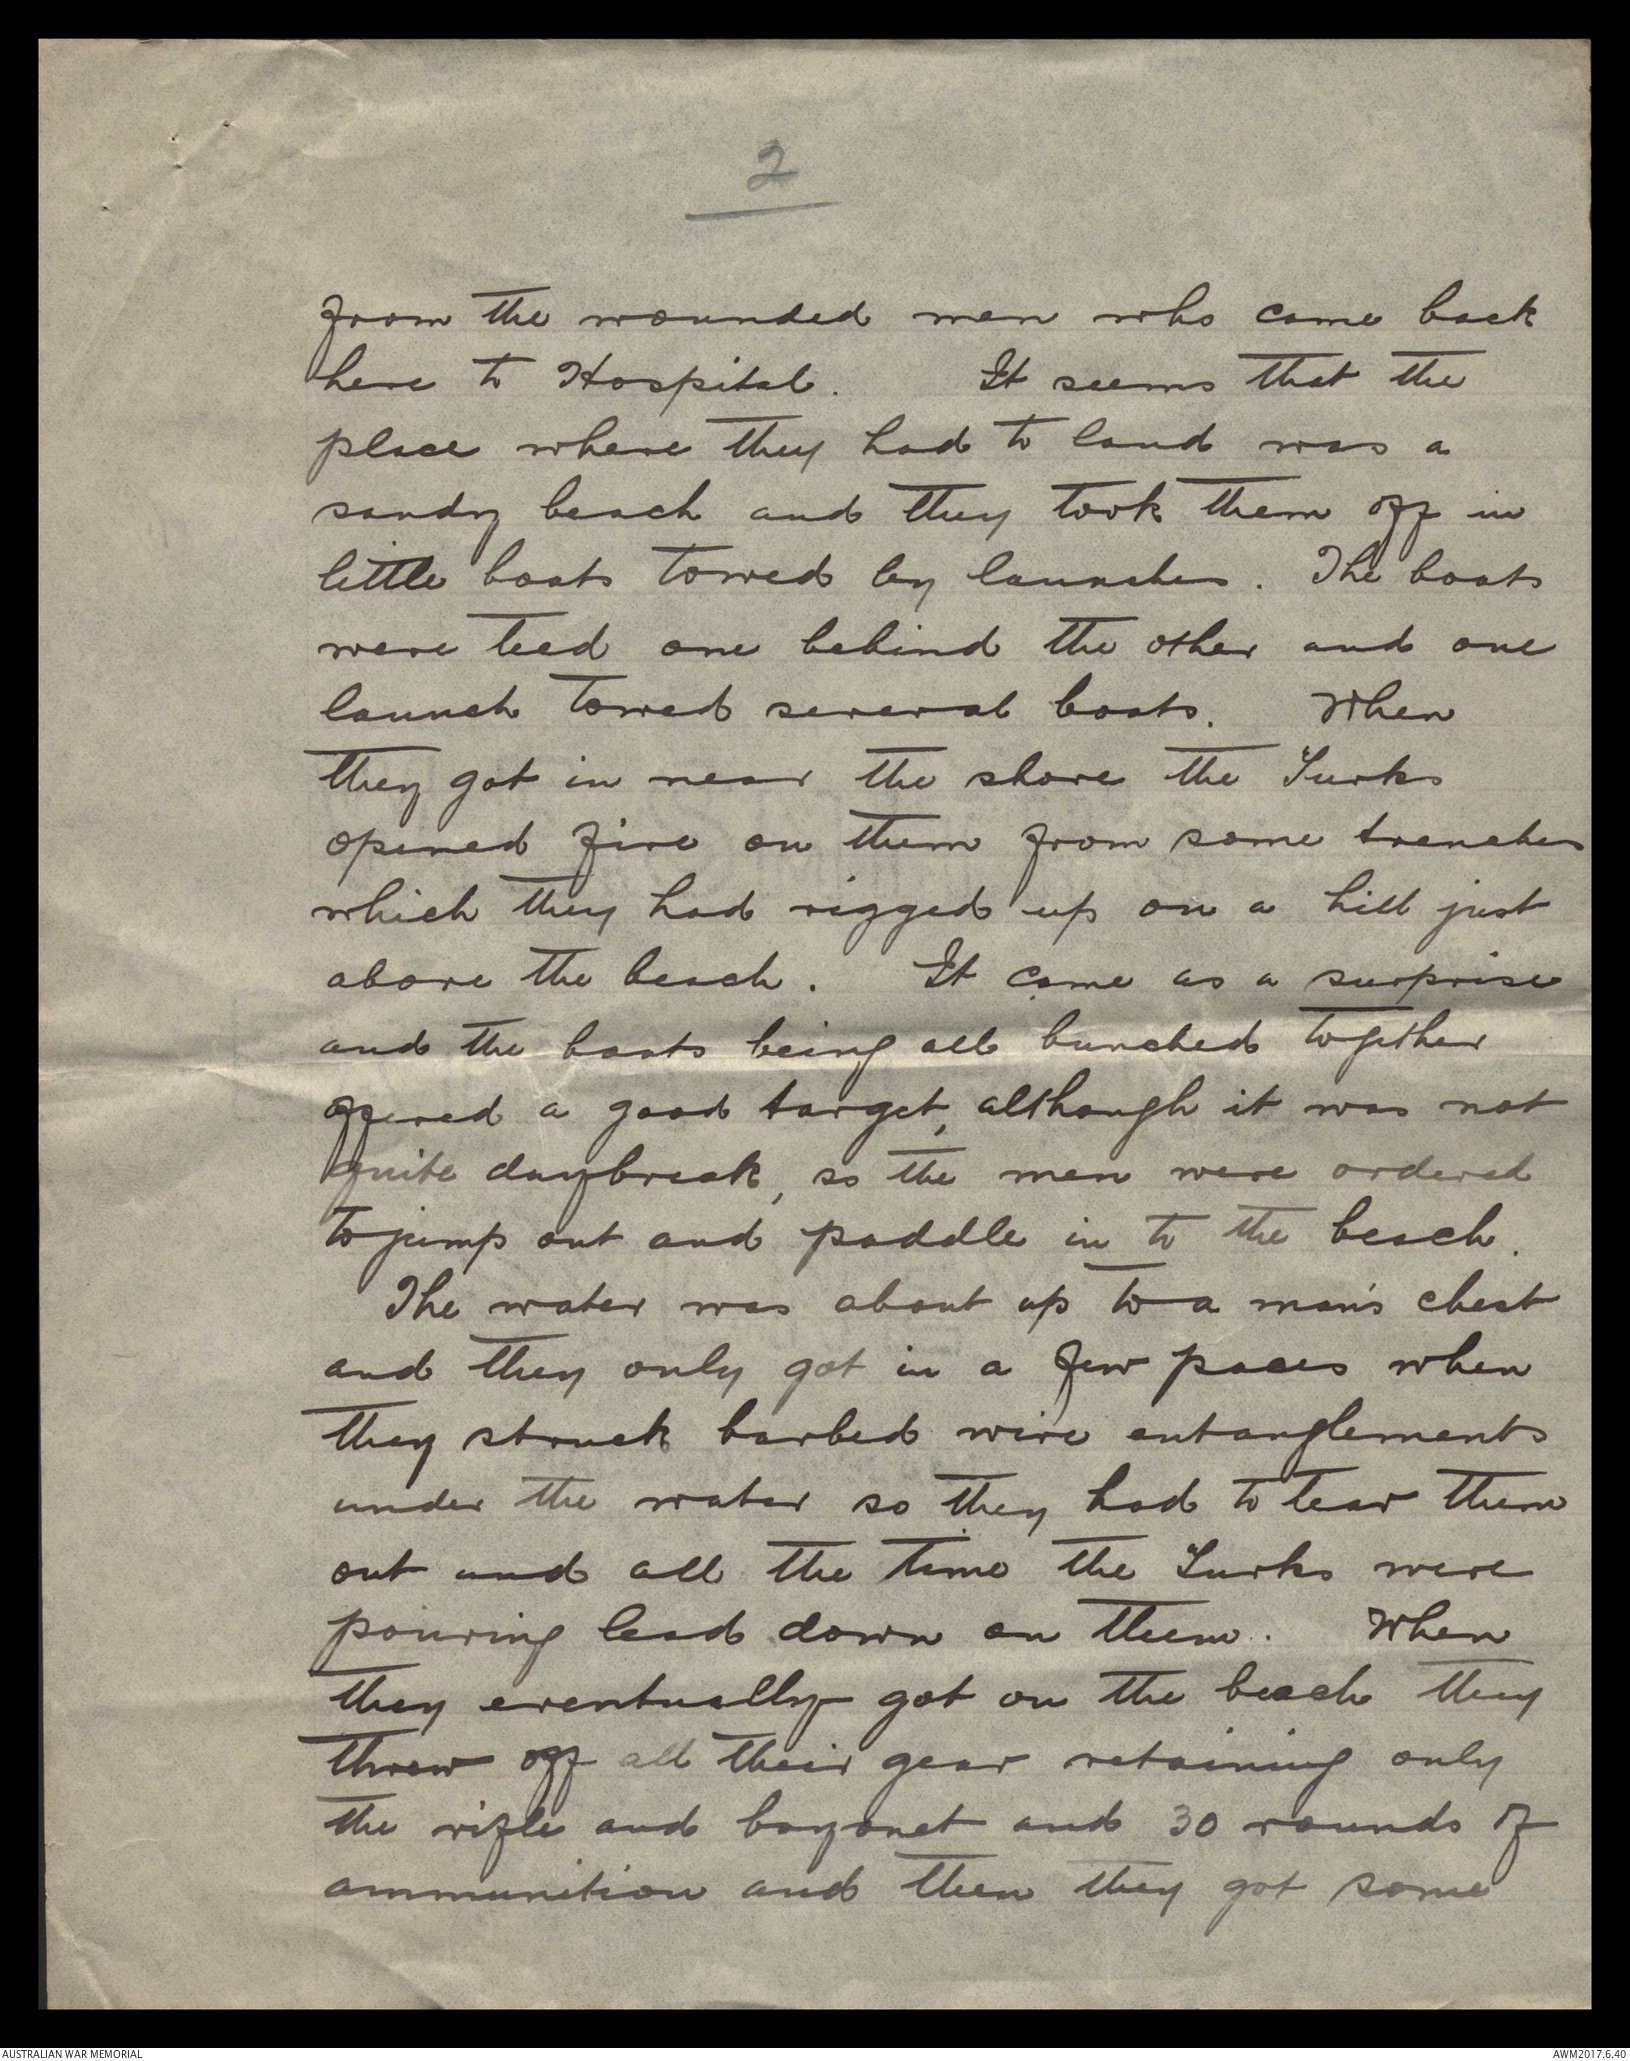 2
from the wounded men who come back
here to Hospital. It seems that the
place where they had to land was a
sandy beach and they took them off in
little boats towed by launches. The boats
were teed one behind the other and one
launch towed several boats. When
they got in near the shore the Turks
opened fire on them from some trenches
which they had rigged up on a hill just
above the beach. It came as a surprise
and the boats being all bunched together
offered a good target, although it was not
quite daybreak, so the men were ordered
to jump out and paddle in to the beach.
The water was about up to a man's chest
and they only got in a few paces when
they struck barbed wire entanglements
under the water so they had to tear them
out and all the time the Turks were
pouring lead down on them. When
they eventually got on the beach they
threw off all their gear retaining only
the rifle and bayonet and 30 rounds of
ammunition and then they got some
AUSTRALIAN WAR MEMORIAL
AWM2017.6.40